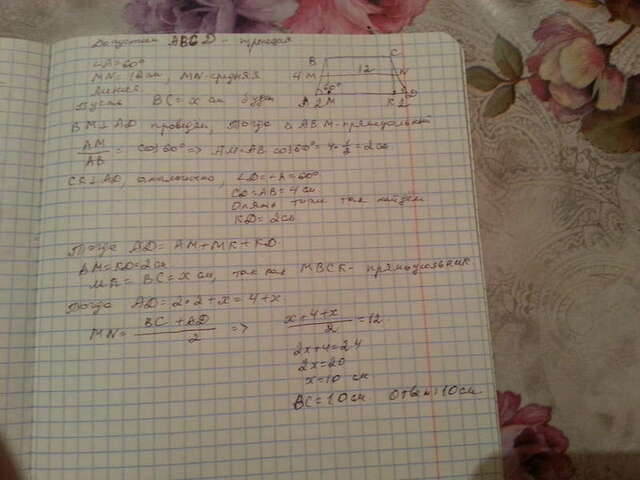 Допустим ABCD - трапеция
∠A=60°
MN=12см, MN-средняя
линия
Пусть BC=x см будет
BM⊥AD проведём, Тогда ABM-прямоугольный
AM/AB = cos60° => AM=AB cos60°=4·1/2=2см
CK⊥AD, аналогично, ∠D=∠A=60°
CD=AB=4см
Опять точно так найдём
KD=2см
Тогда AD=AM+MK+KD
AM=KD=2см
MK=BC=x см, так как MBCK- прямоугольник
Тогда AD=2+2+x=4+x
MN= BC+AD/2 => x+4+x/2 =12
2x+4=24
2x=20
x=10 см
BC=10см Ответ:10см.
B C
4 M 12 N
60° D
2 M K 2